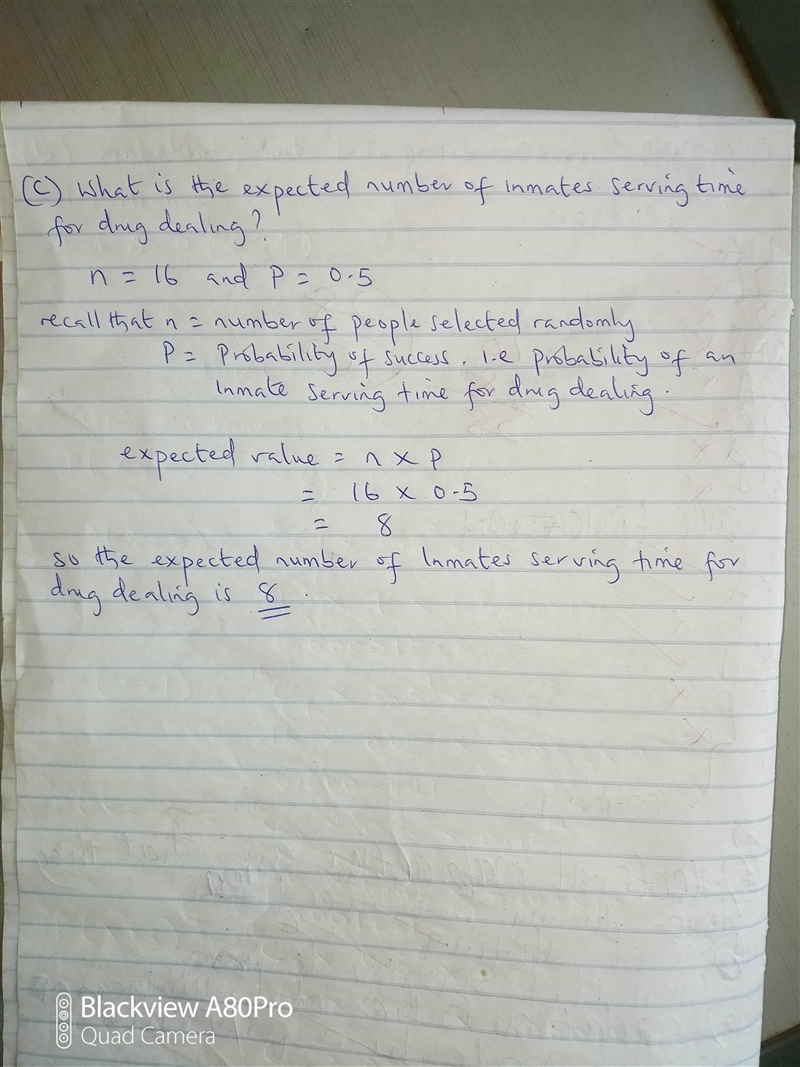 (C) What is the expected number of inmates serving time
for drug dealing?
n = 16 and P = 0.5
recall that n = number of people selected randomly
P = Probability of success. i.e probability of an
Inmate serving time for drug dealing.
expected value = n × P
= 16 × 0.5
= 8
so the expected number of Inmates serving time for
drug dealing is 8.
Blackview A80Pro
Quad Camera